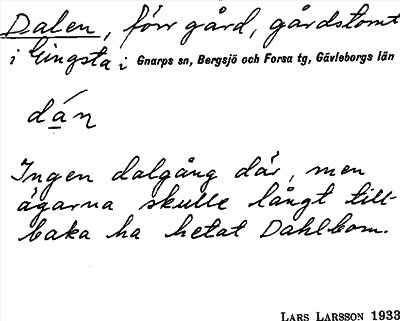 Dalen, förr gård, gårdstomt
i Gingsta i Gnarps sn, Bergsjö och Forsa tg, Gävleborgs län
dán
Ingen dalgång där, men
ägarna skulle långt till-
baka ha hetat Dahlbom.
LARS LARSSON 1933